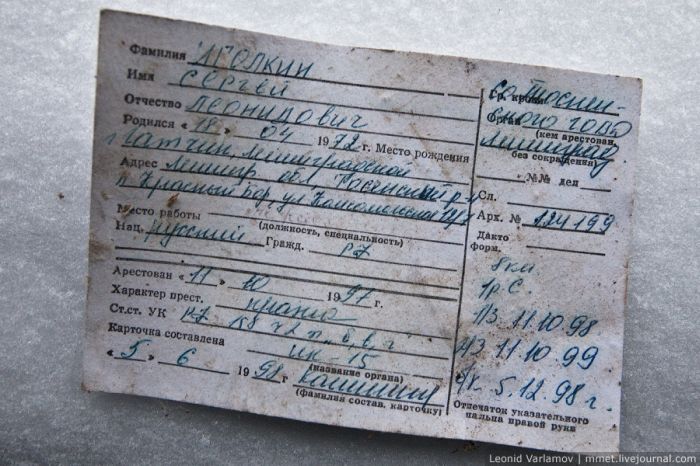 Фамилия ИГОЛКИН
Имя СЕРГЕЙ
Отчество ЛЕОНИДОВИЧ
Родился «18» 04 1972 г. Место рождения
Адрес Ленингр. обл.
п. Красный Бор, ул. Комсомольская
Место работы
(должность, специальность)
Нац. русский Гражд. РФ
Арестован «11» 10 1997 г.
Характер прест. кража
Ст.ст. УК РФ 158 ч2 п. „б, в, г"
Карточка составлена ИК-15
(название органа)
«5» 6 1998 г
(фамилия состав. карточку)
Гр. крови
Орган
(кем арестован,
без сокращения)
№№ дел
Сл.
Арх. №
Дакто
форм.
11.10.98
11.10.99
5.12.98 г.
Отпечаток указательного
пальца правой руки
Leonid Varlamov | mmet.livejournal.com